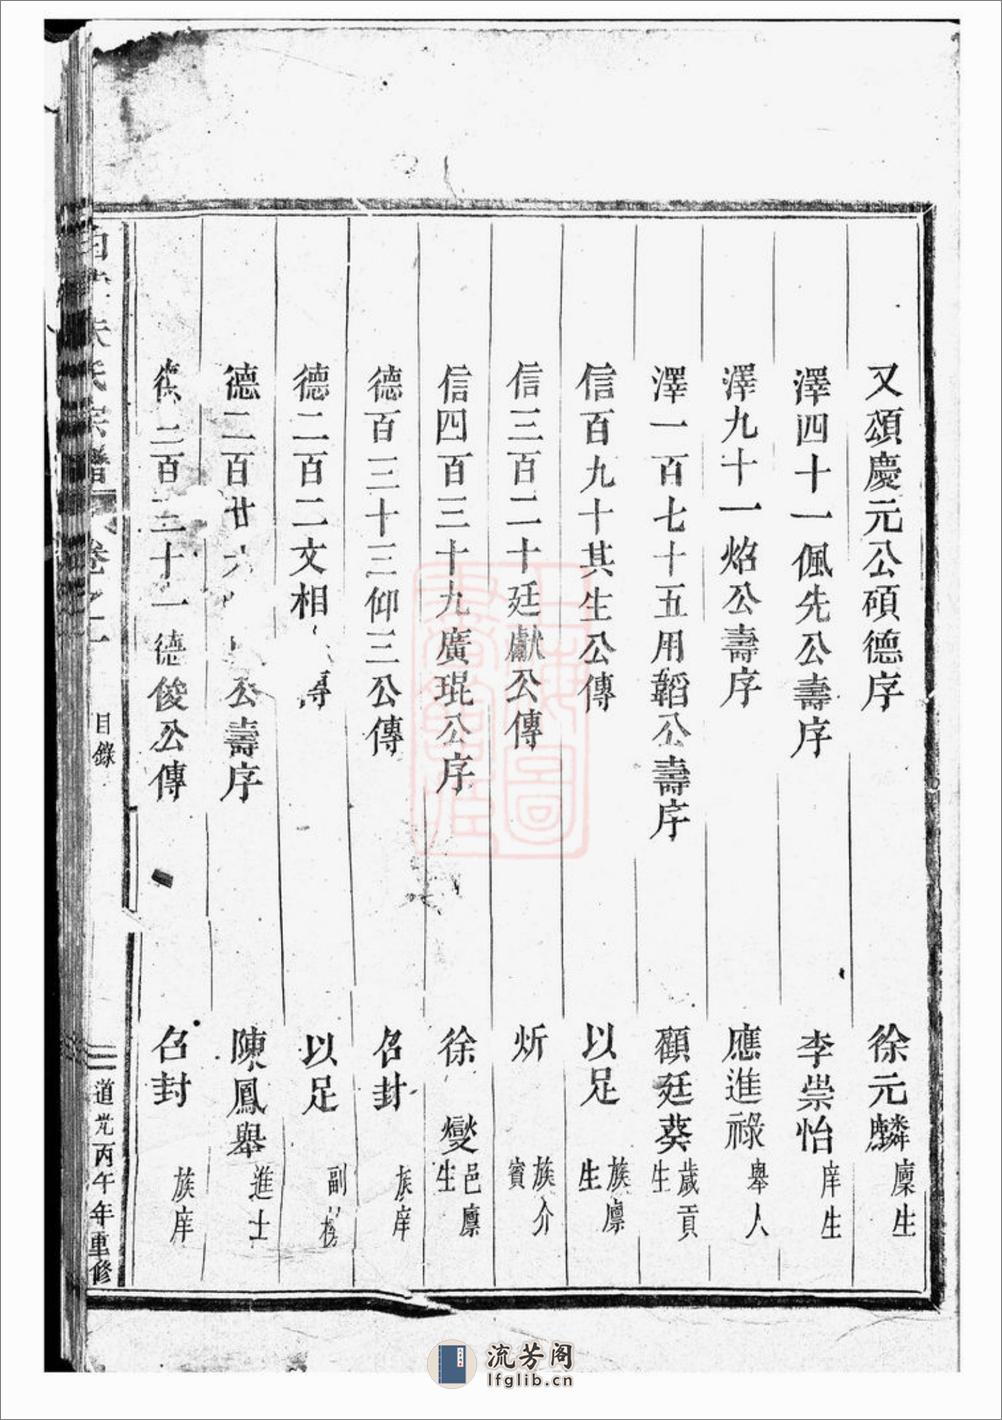 又頌慶元公碩德序 徐元麟 廩生
澤四十一佩先公壽序 李崇怡 庠生
澤九十一焰公壽序 應進祿 舉人
澤一百七十五用韜公壽序 顧廷葵 歲貢生
信百九十其生公傳 以足 族廩生
信三百二十廷獻公傳 炘 族介賓
信四百三十九廣琨公序 徐燮 邑廩生
德百三十三仰三公傳 名封 族庠
德二百二文相 傳 以足 副榜
德二百廿六 公壽序 陳鳳舉 進士
德二百三十一德俊公傳 名封 族庠
朱氏宗譜 卷之二 目錄 道光丙午年重修
流芳阁
lfglib.cn